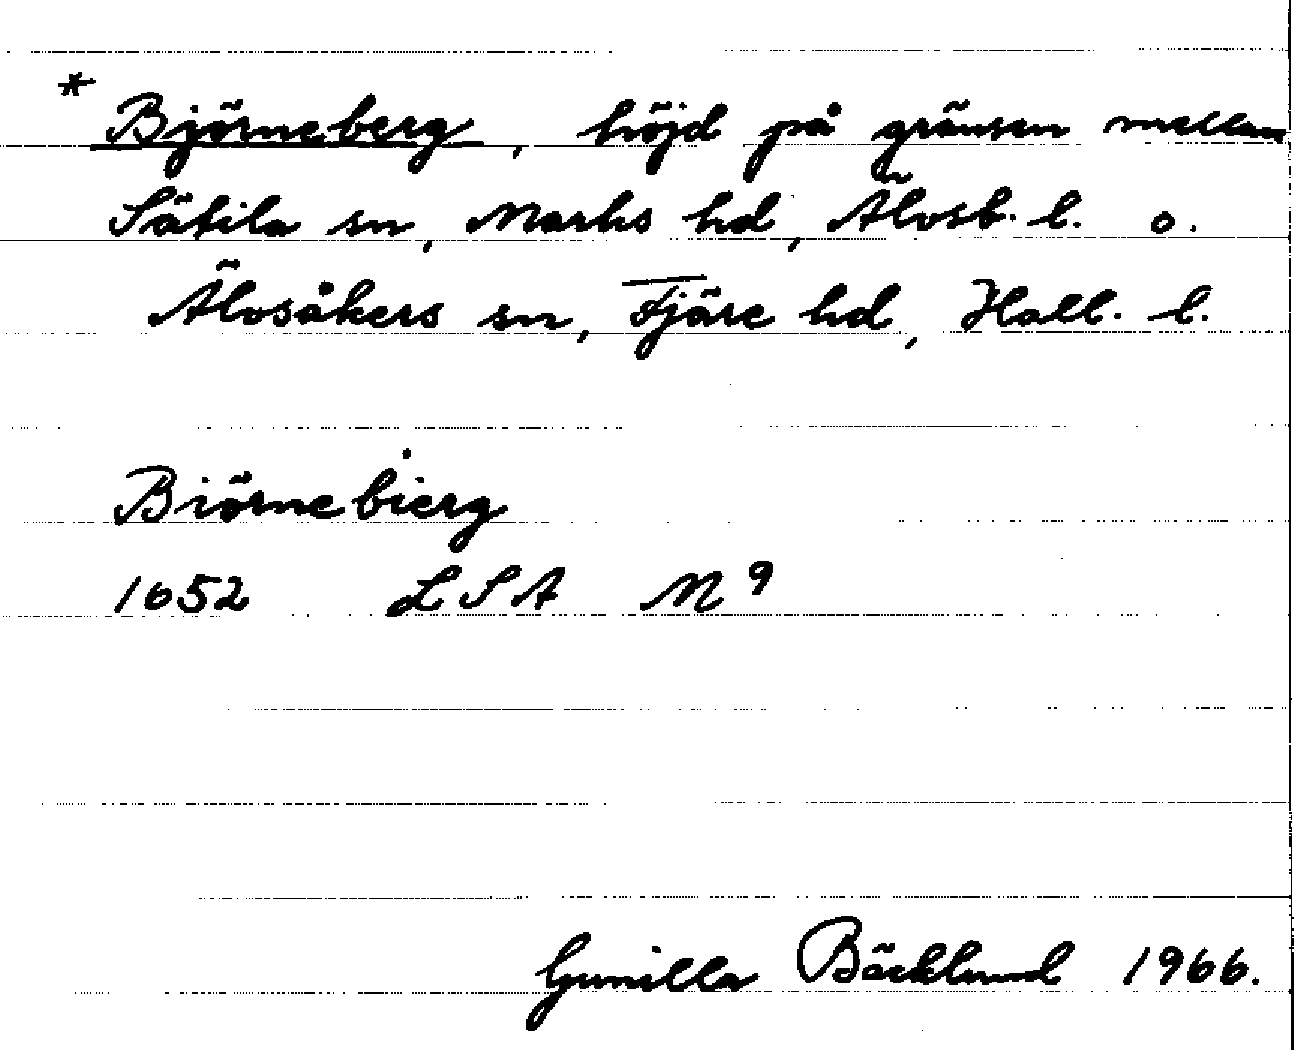 * Björneberg, höjd på gränsen mellan
Sätila sn, Marks hd, Älvsb. l. o.
Älvsåkers sn, Fjäre hd, Hall. l.
Biörnebierg
1652 LSA M9
Gunilla Bäcklund 1966.